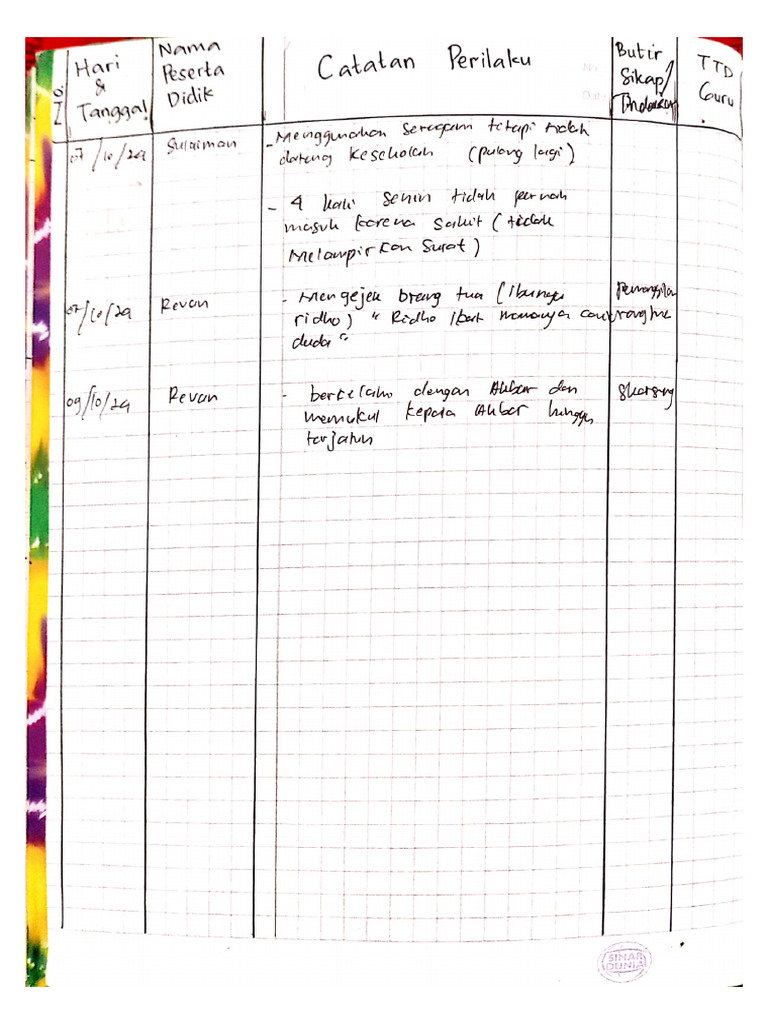 No.
Hari
&
Tanggal
Nama
Peserta
Didik
Catatan Perilaku
Butir
Sikap/
Tindakan
TTD
Guru
07/10/24
Sulaiman
- Menggunakan seragam tetapi tidak
datang kesekolah (pulang lagi)
- 4 kali senin tidak pernah
masuk karena sakit (tidak
Melampirkan Surat)
07/10/24
Revan
- Mengejek orang tua (ibunya
ridho) " Ridho ibat
duda "
pemanggilan
orang tua
09/10/24
Revan
- berkelahi dengan Akbar dan
memukul kepala Akbar hingga
terjatuh
Skorsing
SINAR
DUNIA